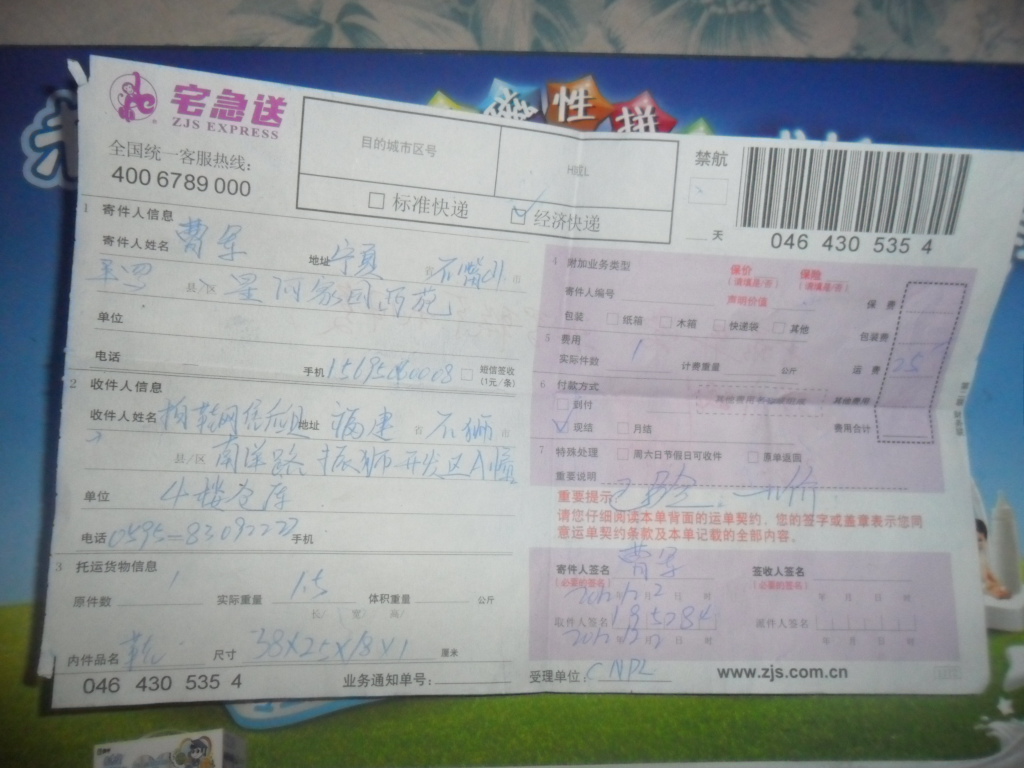 性拼
宅急送
ZJS EXPRESS
全国统一客服热线:
400 6789 000
目的城市区号
标准快递
经济快递
禁航
天
046 430 535 4
1 寄件人信息
寄件人姓名 曹军 地址 宁夏 省 石嘴山 市
县/区 星
单位
电话 手机 短信签收
(1元/条)
2 收件人信息
收件人姓名 地址 福建 省 石狮 市
县/区 南洋路 振狮开发区A幢
单位 4楼仓库
电话 0595-83092222 手机
3 托运货物信息
原件数 1 实际重量 1.5 体积重量 公斤
长/ 宽/ 高/
内件品名 鞋 尺寸 38X25X18X1 厘米
046 430 535 4 业务通知单号:
4 附加业务类型 保价 保险
(请填是/否) (请填是/否)
寄件人编号 声明价值 保费
包装 纸箱 木箱 快递袋 其他 包装费
5 费用
实际件数 1 计费重量 公斤 运费 25
6 付款方式
到付 其他费用
现结 月结 费用合计
7 特殊处理 周六日节假日可收件 原单返回
重要说明
重要提示
请您仔细阅读本单背面的运单契约,您的签字或盖章表示您同
意运单契约条款及本单记载的全部内容。
寄件人签名 曹军 签收人签名
(必要的签名) (必要的签名)
年 月 日 时
取件人签名 185284 派件人签名
年 月 日 时
受理单位: www.zjs.com.cn